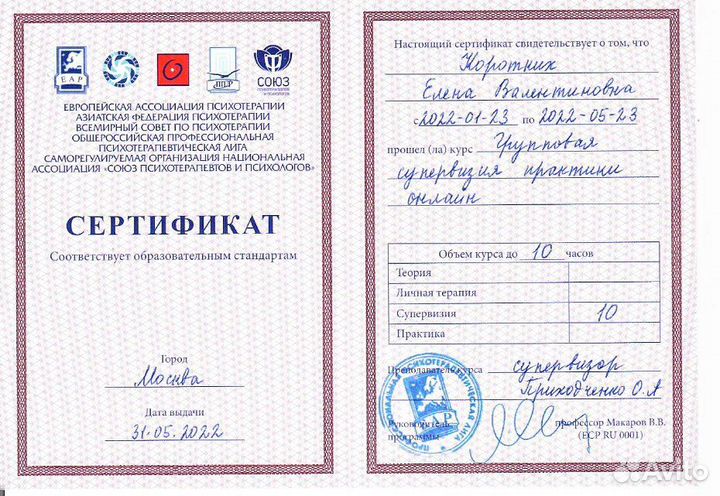 ЕАР
ППЛ
СОЮЗ
ПСИХОТЕРАПЕВТОВ
И ПСИХОЛОГОВ
ЕВРОПЕЙСКАЯ АССОЦИАЦИЯ ПСИХОТЕРАПИИ
АЗИАТСКАЯ ФЕДЕРАЦИЯ ПСИХОТЕРАПИИ
ВСЕМИРНЫЙ СОВЕТ ПО ПСИХОТЕРАПИИ
ОБЩЕРОССИЙСКАЯ ПРОФЕССИОНАЛЬНАЯ
ПСИХОТЕРАПЕВТИЧЕСКАЯ ЛИГА
САМОРЕГУЛИРУЕМАЯ ОРГАНИЗАЦИЯ НАЦИОНАЛЬНАЯ
АССОЦИАЦИЯ «СОЮЗ ПСИХОТЕРАПЕВТОВ И ПСИХОЛОГОВ»
СЕРТИФИКАТ
Соответствует образовательным стандартам
Город
Москва
Дата выдачи
31.05.2022
Настоящий сертификат свидетельствует о том, что
Коротник
Елена Валентиновна
с 2022-01-23 по 2022-05-23
прошел (ла) курс Групповая
супервизия практики
онлайн
Объем курса до 10 часов
Теория
Личная терапия
Супервизия 10
Практика
Преподаватель курса супервизор
Приходченко О.А
Руководитель
программы
профессор Макаров В.В.
(ECP RU 0001)
ПРОФЕССИОНАЛЬНАЯ ПСИХОТЕРАПЕВТИЧЕСКАЯ ЛИГА
ЕАР
Avito